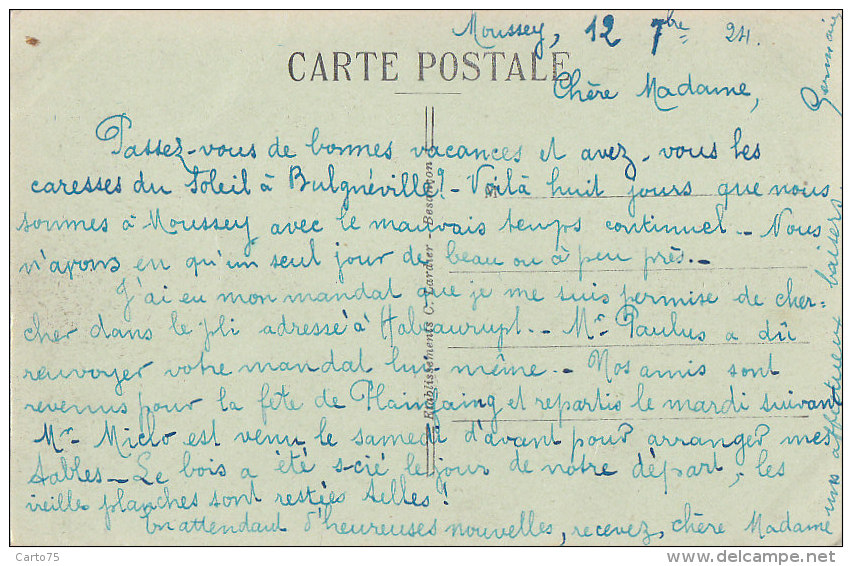 Moussey, 12 7bre 24.
CARTE POSTALE
Chère Madame,
Passez-vous de bonnes vacances et avez-vous les
caresses du soleil à Bulgnéville? - Voilà huit jours que nous
sommes à Moussey avec le mauvais temps continuel - Nous
n'avons eu qu'un seul jour de beau ou à peu près. -
J'ai eu mon mandat que je me suis permise de cher-
cher dans le pli adressé à Habeaurupt. - Mr Paulus a dû
renvoyer votre mandat lui-même. - Nos amis sont
revenus pour la fête de Plainfaing et repartis le mardi suivant
Mr Miclo est venu le samedi d'avant pour arranger mes
tables - Le bois a été scié le jour de notre départ, les
vieilles planches sont restées telles!
En attendant d'heureuses nouvelles, recevez, chère Madame
mes affectueux baisers.
Germaine
Etablissements C. Lardier - Besançon
Carto75
www.delcampe.net